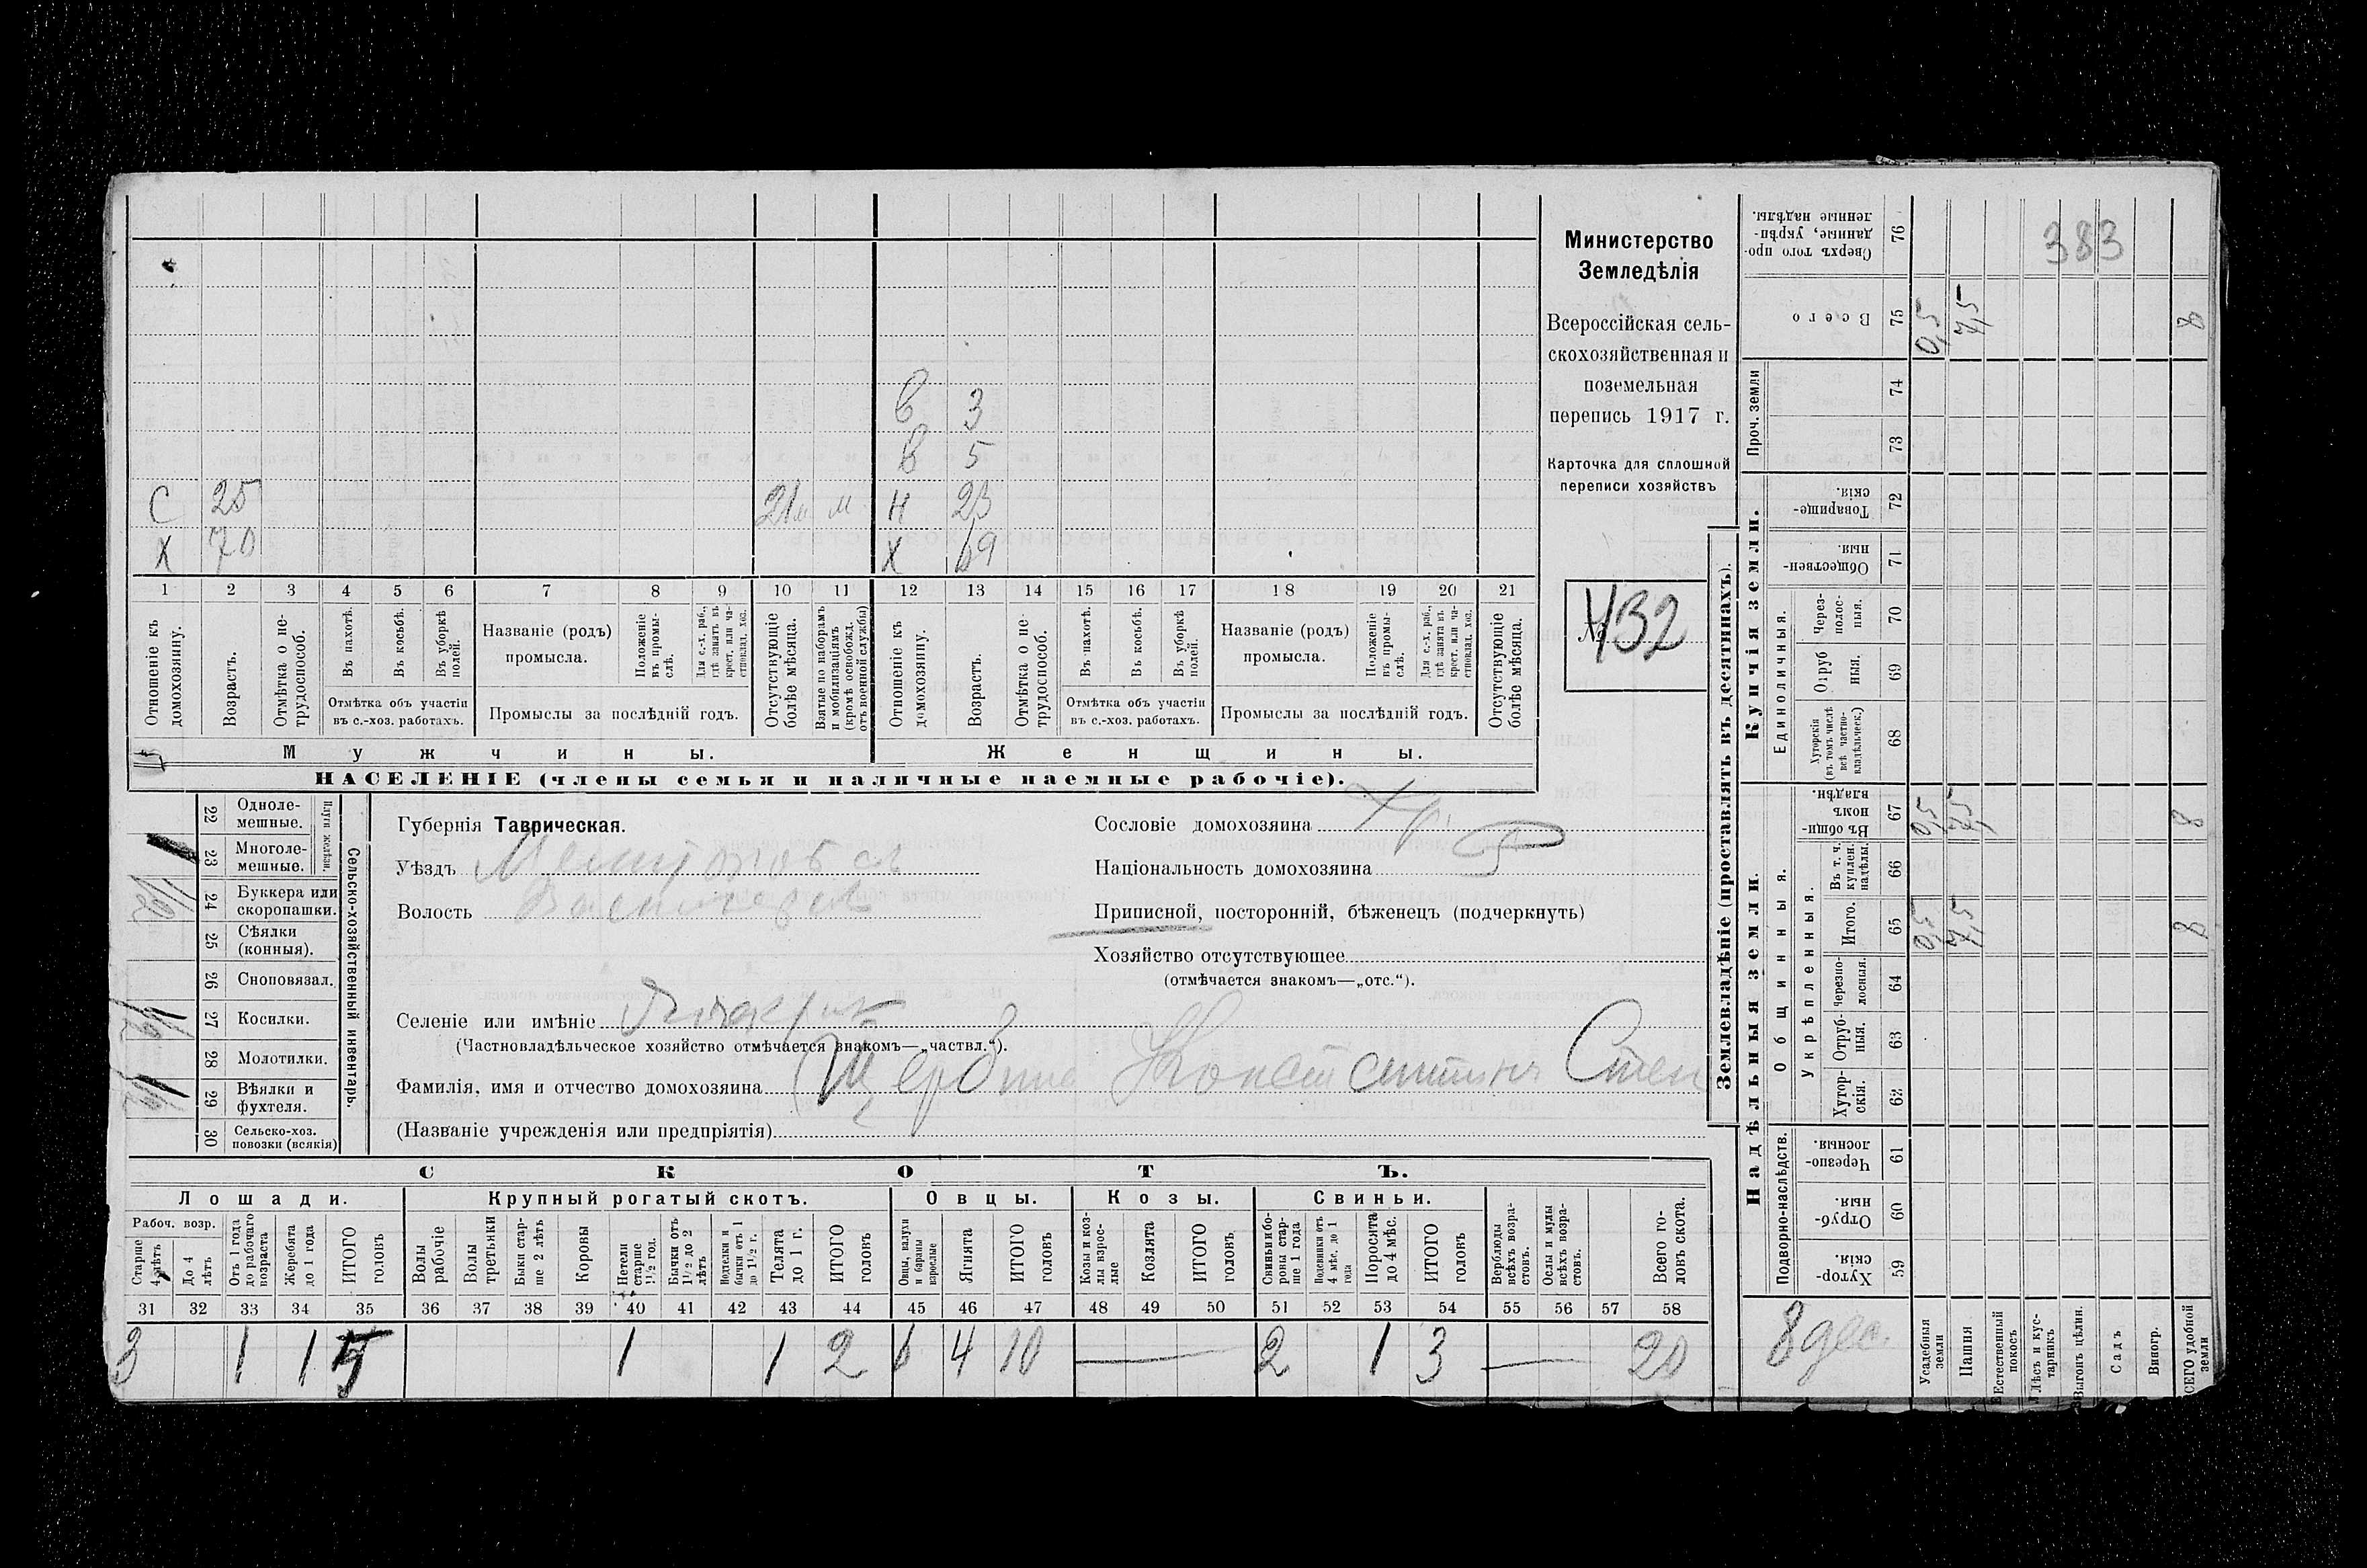 Министерство
Земледѣлія
Всероссійская сель-
скохозяйственная и
поземельная
перепись 1917 г.
Карточка для сплошной
переписи хозяйствъ
№ 432
383
В 3
В 5
С 25 21 м м Н 23
Х 70 Х 69
1 2 3 4 5 6 7 8 9 10 11 12 13 14 15 16 17 18 19 20 21
Отношеніе къ домохозяину.
Возрастъ.
Отмѣтка о не-трудоспособ.
Въ пахотѣ.
Въ косьбѣ.
Въ уборкѣ полей.
Отмѣтка объ участіи
въ с.-хоз. работахъ.
Названіе (родъ)
промысла.
Положеніе въ промы-слѣ.
Для с.-х. раб., гдѣ занятъ въ крест. или ча-стновлад. хоз.
Промыслы за послѣдній годъ.
Отсутствующіе болѣе мѣсяца.
Взятые по наборамъ и мобилизаціямъ (кромѣ освобожд. отъ военной службы)
Отношеніе къ домохозяину.
Возрастъ.
Отмѣтка о не-трудоспособ.
Въ пахотѣ.
Въ косьбѣ.
Въ уборкѣ полей.
Отмѣтка объ участіи
въ с.-хоз. работахъ.
Названіе (родъ)
промысла.
Положеніе въ промы-слѣ.
Для с.-х. раб., гдѣ занята въ крест. или ча-стновлад. хоз.
Промыслы за послѣдній годъ.
Отсутствующіе болѣе мѣсяца.
Мужчины. Женщины.
НАСЕЛЕНІЕ (члены семьи и наличные наемные рабочіе).
Сельско-хозяйственный инвентарь.
Плуги желѣзн.
22 Одноле-мешные.
23 Многоле-мешные. 1
24 Буккера или скоропашки.
25 Сѣялки (конныя).
26 Сноповязал.
27 Косилки.
28 Молотилки.
29 Вѣялки и фухтеля.
30 Сельско-хоз. повозки (всякія)
Губернія Таврическая.
Уѣздъ Мелитопольск
Волость
Селеніе или имѣніе
(Частновладѣльческое хозяйство отмѣчается знакомъ—„частвл.“).
Фамилія, имя и отчество домохозяина Щербина Константинъ Степ
(Названіе учрежденія или предпріятія)
Сословіе домохозяина Кр.
Національность домохозяина
Приписной, посторонній, бѣженецъ (подчеркнуть)
Хозяйство отсутствующее
(отмѣчается знакомъ—„отс.“).
СКОТЪ.
Лошади. Крупный рогатый скотъ. Овцы. Козы. Свиньи.
Рабоч. возр.
Старше 4 лѣтъ
До 4 лѣтъ
Отъ 1 года до рабочаго возраста
Жеребята до 1 года
ИТОГО головъ
Волы рабочіе
Волы третьяки
Быки стар-ше 2 лѣтъ
Коровы
Нетели старше 1½ год.
Бычки отъ 1½ до 2 лѣтъ
Подтелки и бычки отъ 1 до 1½ г.
Телята до 1 г.
ИТОГО головъ
Овцы, валухи и бараны взрослые
Ягнята
ИТОГО головъ
Козы и коз-лы взрос-лые
Козлята
ИТОГО головъ
Свиньи и бо-ровы стар-ше 1 года
Подсвинки отъ 4 мѣс. до 1 года
Поросята до 4 мѣс.
ИТОГО головъ
Верблюды всѣхъ возра-стовъ.
Ослы и мулы всѣхъ возра-стовъ.
Всего го-ловъ скота.
31 32 33 34 35 36 37 38 39 40 41 42 43 44 45 46 47 48 49 50 51 52 53 54 55 56 57 58
3 1 1 5 1 1 2 6 4 10 — 2 1 3 — 20
Землевладѣніе (проставлять въ десятинахъ).
Надѣльныя земли. Купчія земли.
Подворно-наслѣдств.
Общинныя.
Укрѣпленныя.
Единоличныя.
Проч. земли
59 Хутор-скія.
60 Отруб-ныя.
61 Черезпо-лосныя.
62 Хутор-скія.
63 Отруб-ныя.
64 Черезпо-лосныя.
65 Итого. 0,5 7,5 8
66 Въ т. ч. куплен. надѣлы.
67 Въ общи-номъ владѣн. 0,5 7,5 8
68 Хуторскія (въ томъ числѣ всѣ частно-владѣльческ.)
69 Отруб ныя.
70 Через-полос-ныя.
71 Обществен-ныя.
72 Товарище-скія.
73
74
75 Всего 0,5 7,5 8
76 Сверхъ того про-данные, укрѣп-ленные надѣлы.
8 дес.
Усадебныя земли
Пашня
Естественный покосъ
Лѣсъ и кус-тарникъ
Выгонъ цѣлин.
Садъ
Виногр.
ВСЕГО удобной земли